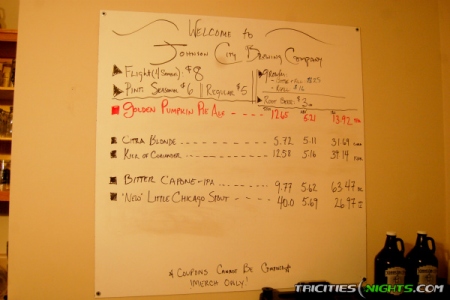 Welcome to
Johnson City Brewing Company
Flight (4 $8
Growler
Pint: Seasonal $6 || Regular $5
Root Beer $3
Golden Pumpkin Pie Ale - - - - 12.65 5.21 13.92
Citra Blonde - - - - - - 5.72 5.11 31.69
Kick of Coriander - - - - 12.58 5.16 39.14
Bitter Capone - IPA - - - - 9.77 5.62 63.47
"New" Little Chicago Stout - - - - 40.0 5.69 26.97
* Coupons Cannot Be Combined
1/Merch Only!
TRICITIESNIGHTS.COM